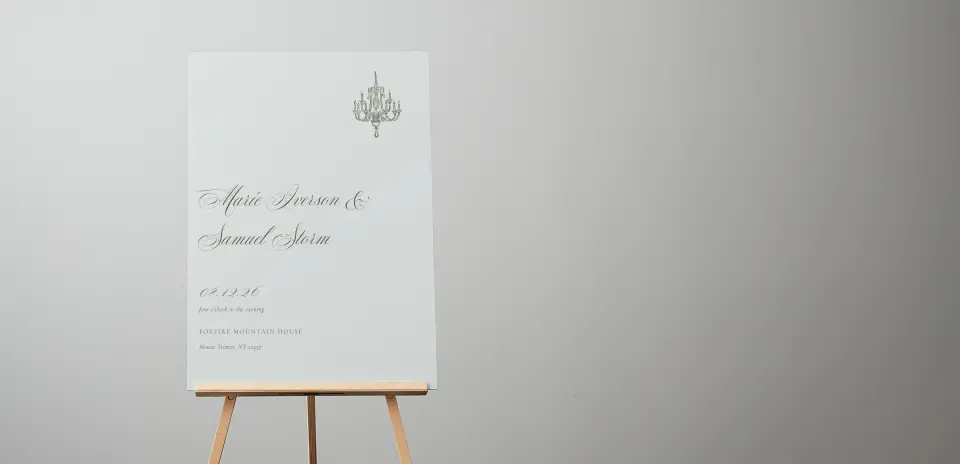 Marie Iverson &
Samuel Storm
08.12.26
four o'clock in the evening
FOXFIRE MOUNTAIN HOUSE
Mount Tremper, NY 12457